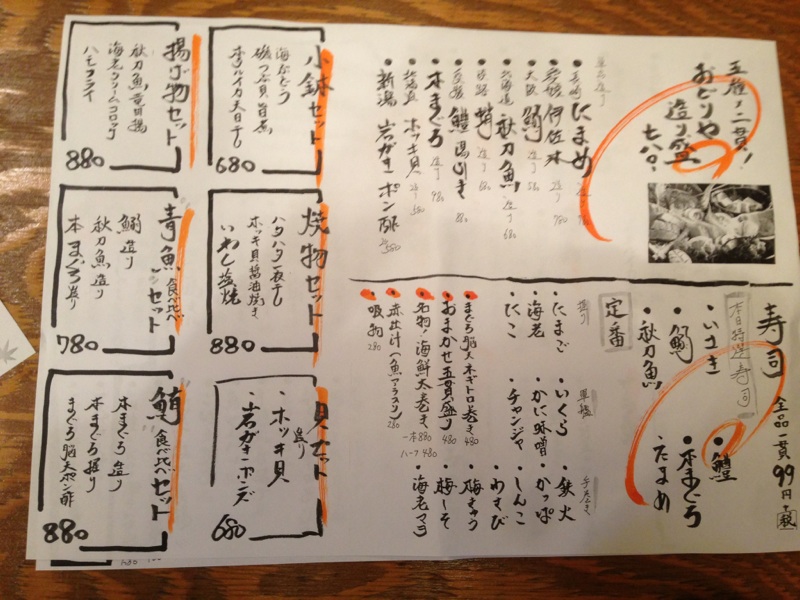 五種・二貫!
おどりや
造り盛
七八〇
単品造り
長崎 たまめ 造り
愛媛 伊佐木 造り 780
大阪 鰯 造り 580
北海道 秋刀魚 造り 680
本まぐろ 造り 980
北海道 ホッキ貝 造り 580
新潟 岩がきポン酢
寿司 全品一貫99円
本日特選寿司
・いさき
・鰯
・秋刀魚
・鱧
・本まぐろ
・たまめ
定番
握り
・たまご
・海老
・たこ
軍艦
・いくら
・かに味噌
・チャンジャ
手巻き
・鉄火
・かっぱ
・しんこ
・わさび
・梅きゅう
・梅しそ
・海老マヨ
まぐろ脳天ネギトロ巻き 480
おまかせ五貫盛り 480
名物!海鮮太巻き 一本880 ハーフ480
赤出汁(魚アラ入り) 280
吸物 280
小鉢セット
海ぶどう
磯つぶ貝旨煮
本ホタルイカ天日干し
680
焼物セット
ハタハタ一夜干し
ホッキ貝醤油焼き
いわし塩焼
880
貝セット
造り
・ホッキ貝
・岩がきポンズ
680
揚げ物セット
秋刀魚竜田揚
海老クリームコロッケ
ハモフライ
880
青魚食べ比べセット
鰯造り
秋刀魚造り
本まぐろ造り
780
鮪食べ比べセット
本まぐろ造り
本まぐろ握り
まぐろ脳天ポン酢
880